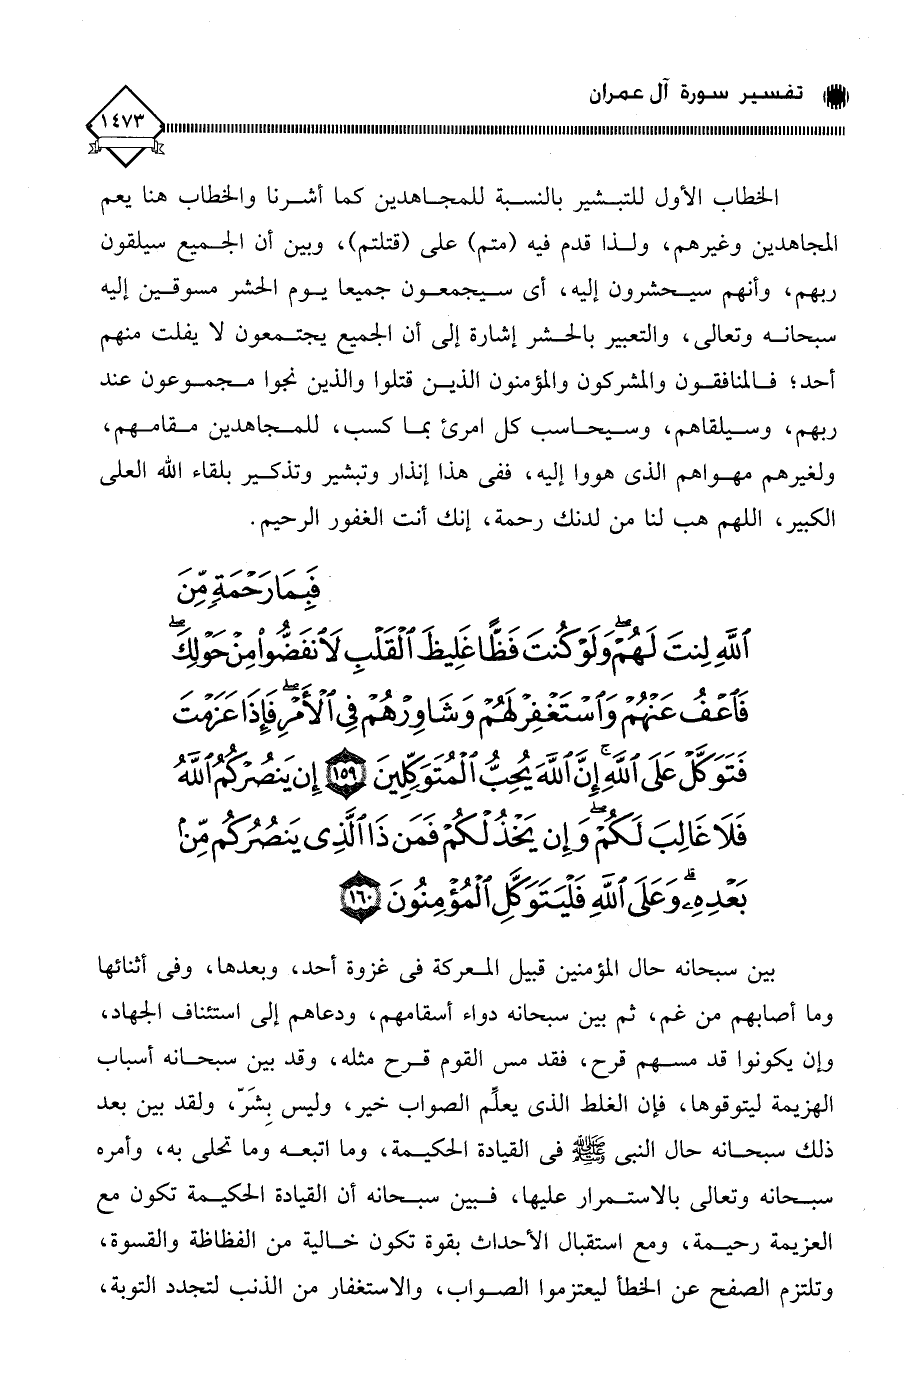 تفسير سورة آل عمران
١٤٧٣
الخطاب الأول للتبشير بالنسبة للمجاهدين كما أشرنا والخطاب هنا يعم
المجاهدين وغيرهم، ولذا قدم فيه (متم) على (قتلتم)، وبين أن الجميع سيلقون
ربهم، وأنهم سيحشرون إليه، أى سيجمعون جميعا يوم الحشر مسوقين إليه
سبحانه وتعالى، والتعبير بالحشر إشارة إلى أن الجميع يجتمعون لا يفلت منهم
أحد؛ فالمنافقون والمشركون والمؤمنون الذين قتلوا والذين نجوا مجموعون عند
ربهم، وسيلقاهم، وسيحاسب كل امرئ بما كسب، للمجاهدين مقامهم،
ولغيرهم مهواهم الذى هووا إليه، ففى هذا إنذار وتبشير وتذكير بلقاء الله العلى
الكبير، اللهم هب لنا من لدنك رحمة، إنك أنت الغفور الرحيم.
فَبِمَا رَحْمَةٍ مِّنَ
ٱللَّهِ لِنتَ لَهُمْ ۖ وَلَوْ كُنتَ فَظًّا غَلِيظَ ٱلْقَلْبِ لَٱنفَضُّوا۟ مِنْ حَوْلِكَ ۖ
فَٱعْفُ عَنْهُمْ وَٱسْتَغْفِرْ لَهُمْ وَشَاوِرْهُمْ فِى ٱلْأَمْرِ ۖ فَإِذَا عَزَمْتَ
فَتَوَكَّلْ عَلَى ٱللَّهِ ۚ إِنَّ ٱللَّهَ يُحِبُّ ٱلْمُتَوَكِّلِينَ ١٥٩ إِن يَنصُرْكُمُ ٱللَّهُ
فَلَا غَالِبَ لَكُمْ ۖ وَإِن يَخْذُلْكُمْ فَمَن ذَا ٱلَّذِى يَنصُرُكُم مِّنۢ
بَعْدِهِۦ ۗ وَعَلَى ٱللَّهِ فَلْيَتَوَكَّلِ ٱلْمُؤْمِنُونَ ١٦٠
بين سبحانه حال المؤمنين قبيل المعركة فى غزوة أحد، وبعدها، وفى أثنائها
وما أصابهم من غم، ثم بين سبحانه دواء أسقامهم، ودعاهم إلى استئناف الجهاد،
وإن يكونوا قد مسهم قرح، فقد مس القوم قرح مثله، وقد بين سبحانه أسباب
الهزيمة ليتوقوها، فإن الغلط الذى يعلِّم الصواب خير، وليس بِشَرّ، ولقد بين بعد
ذلك سبحانه حال النبى ﷺ فى القيادة الحكيمة، وما اتبعه وما تحلى به، وأمره
سبحانه وتعالى بالاستمرار عليها، فبين سبحانه أن القيادة الحكيمة تكون مع
العزيمة رحيمة، ومع استقبال الأحداث بقوة تكون خالية من الفظاظة والقسوة،
وتلتزم الصفح عن الخطأ ليعتزموا الصواب، والاستغفار من الذنب لتجدد التوبة،